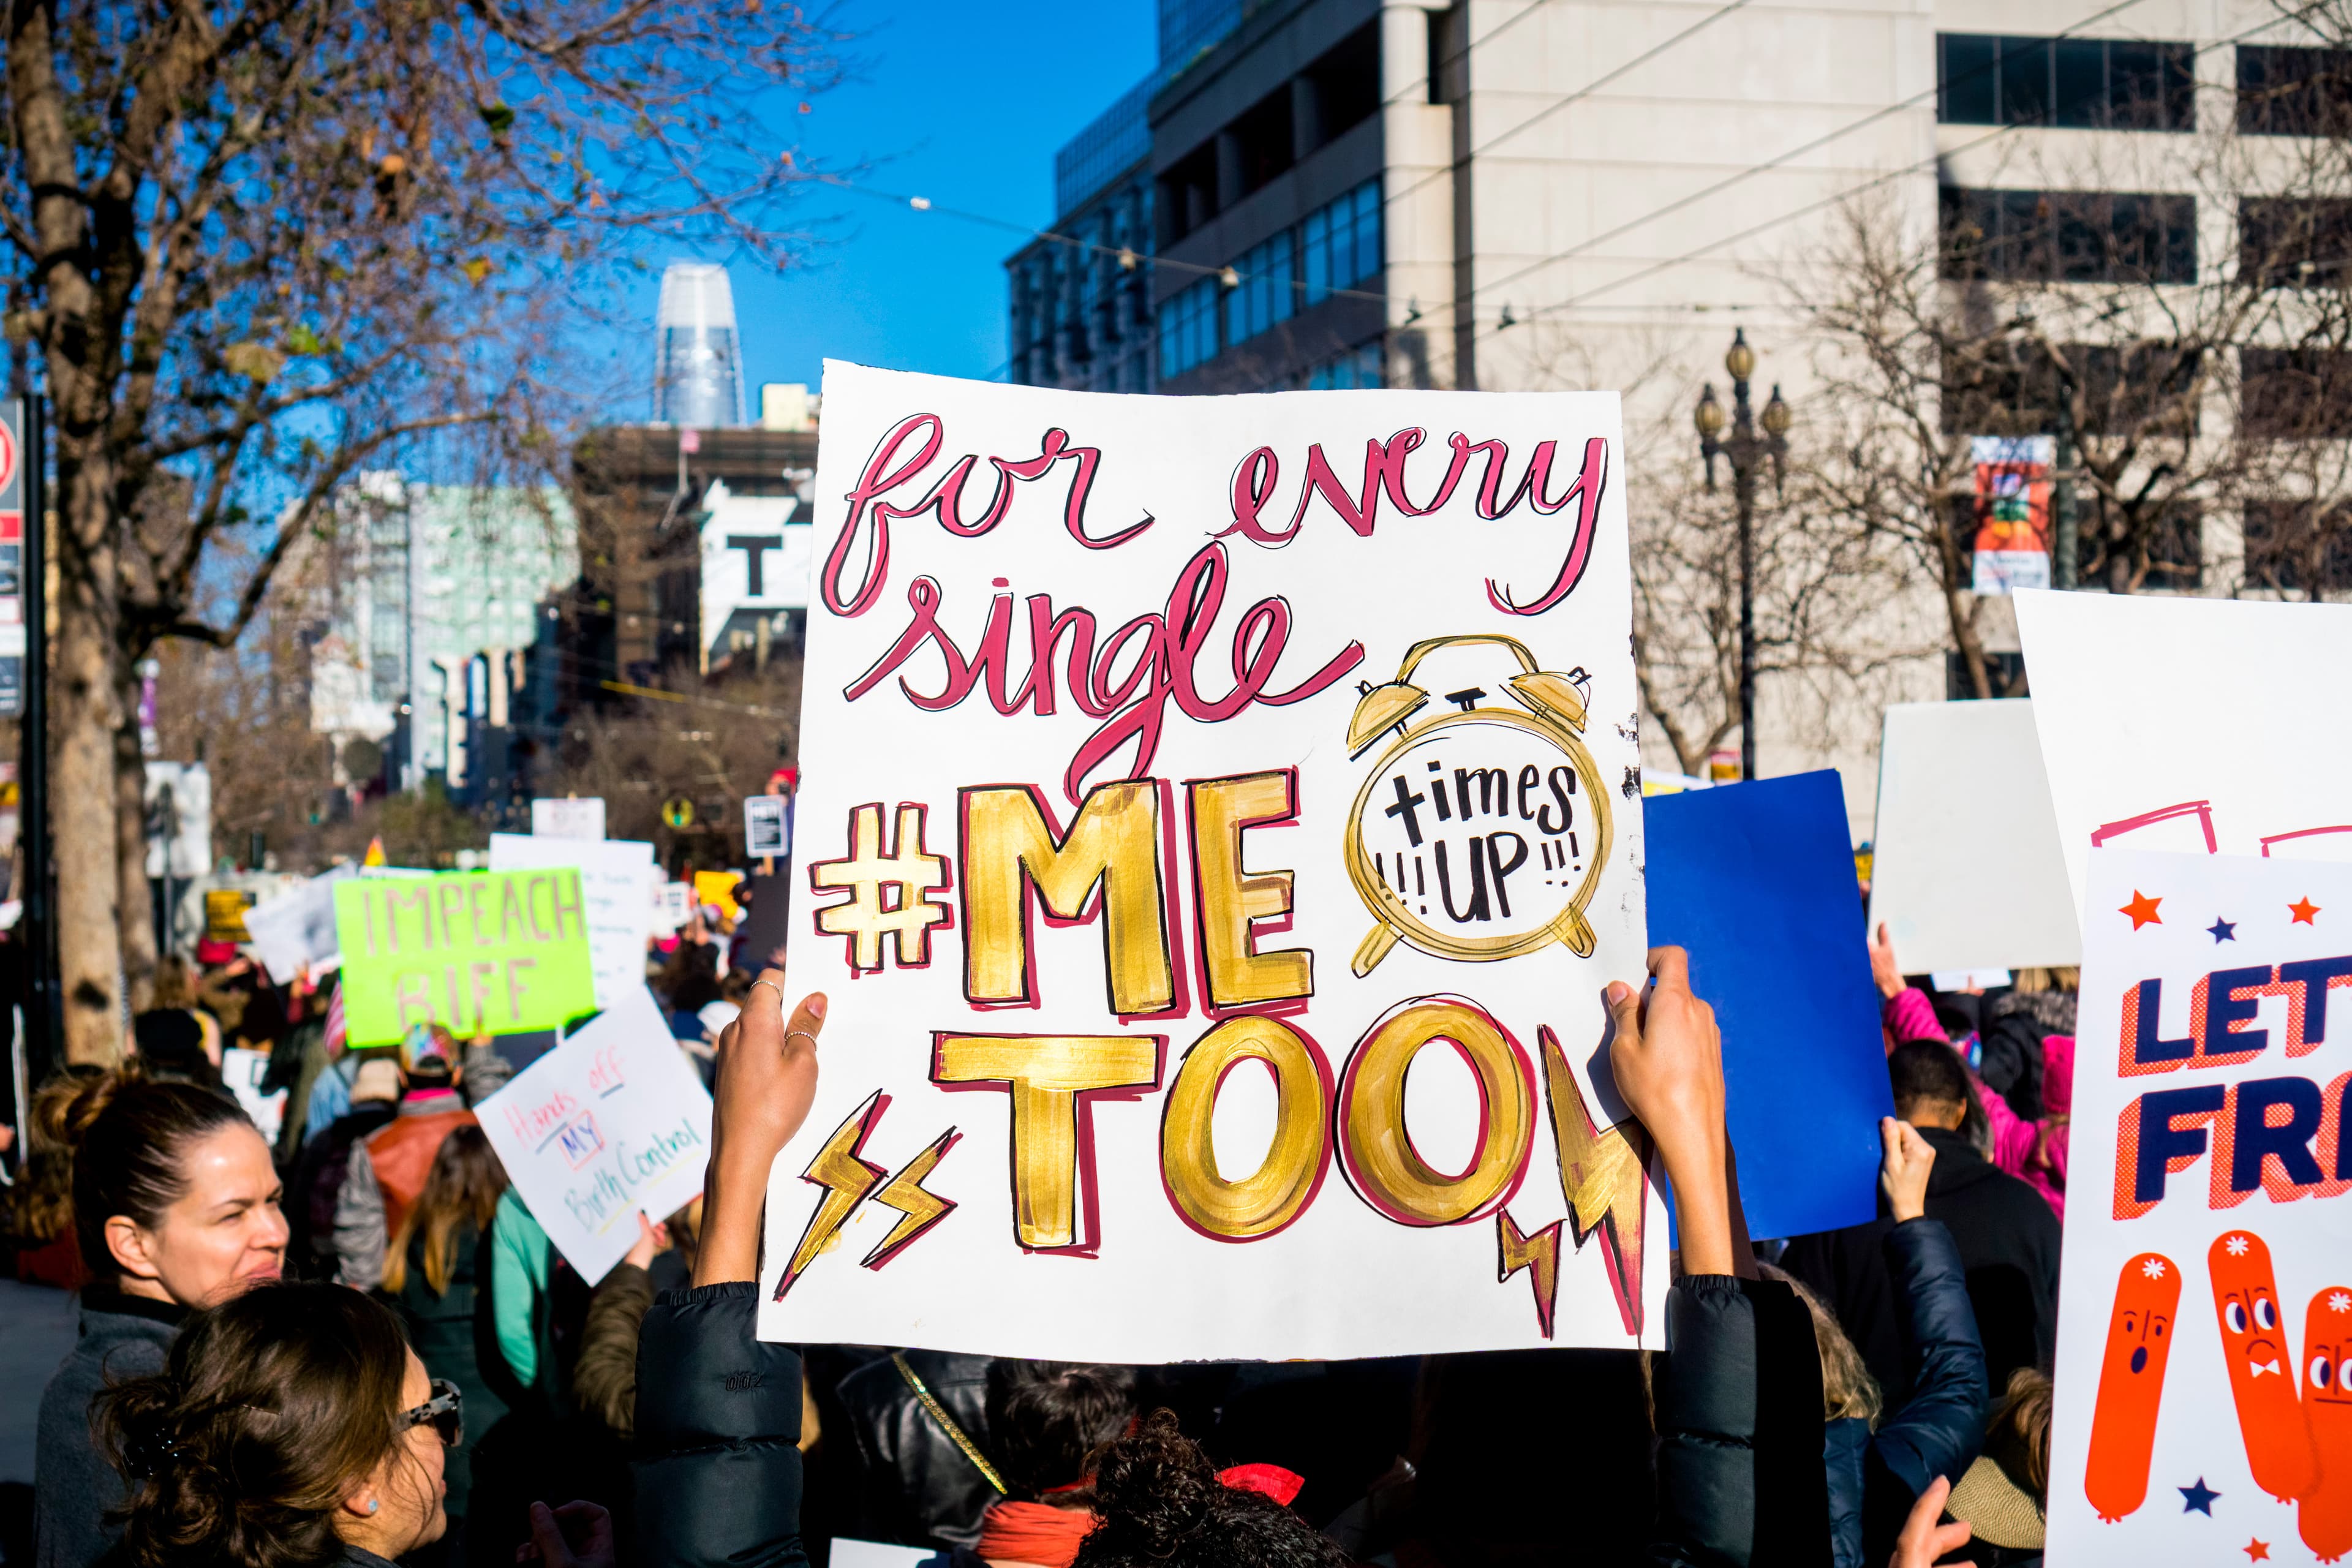 for every
single
#ME
TOO
times
!!! UP !!!
IMPEACH
BIFF
Hands off
MY
Birth Control
T
LET
FR